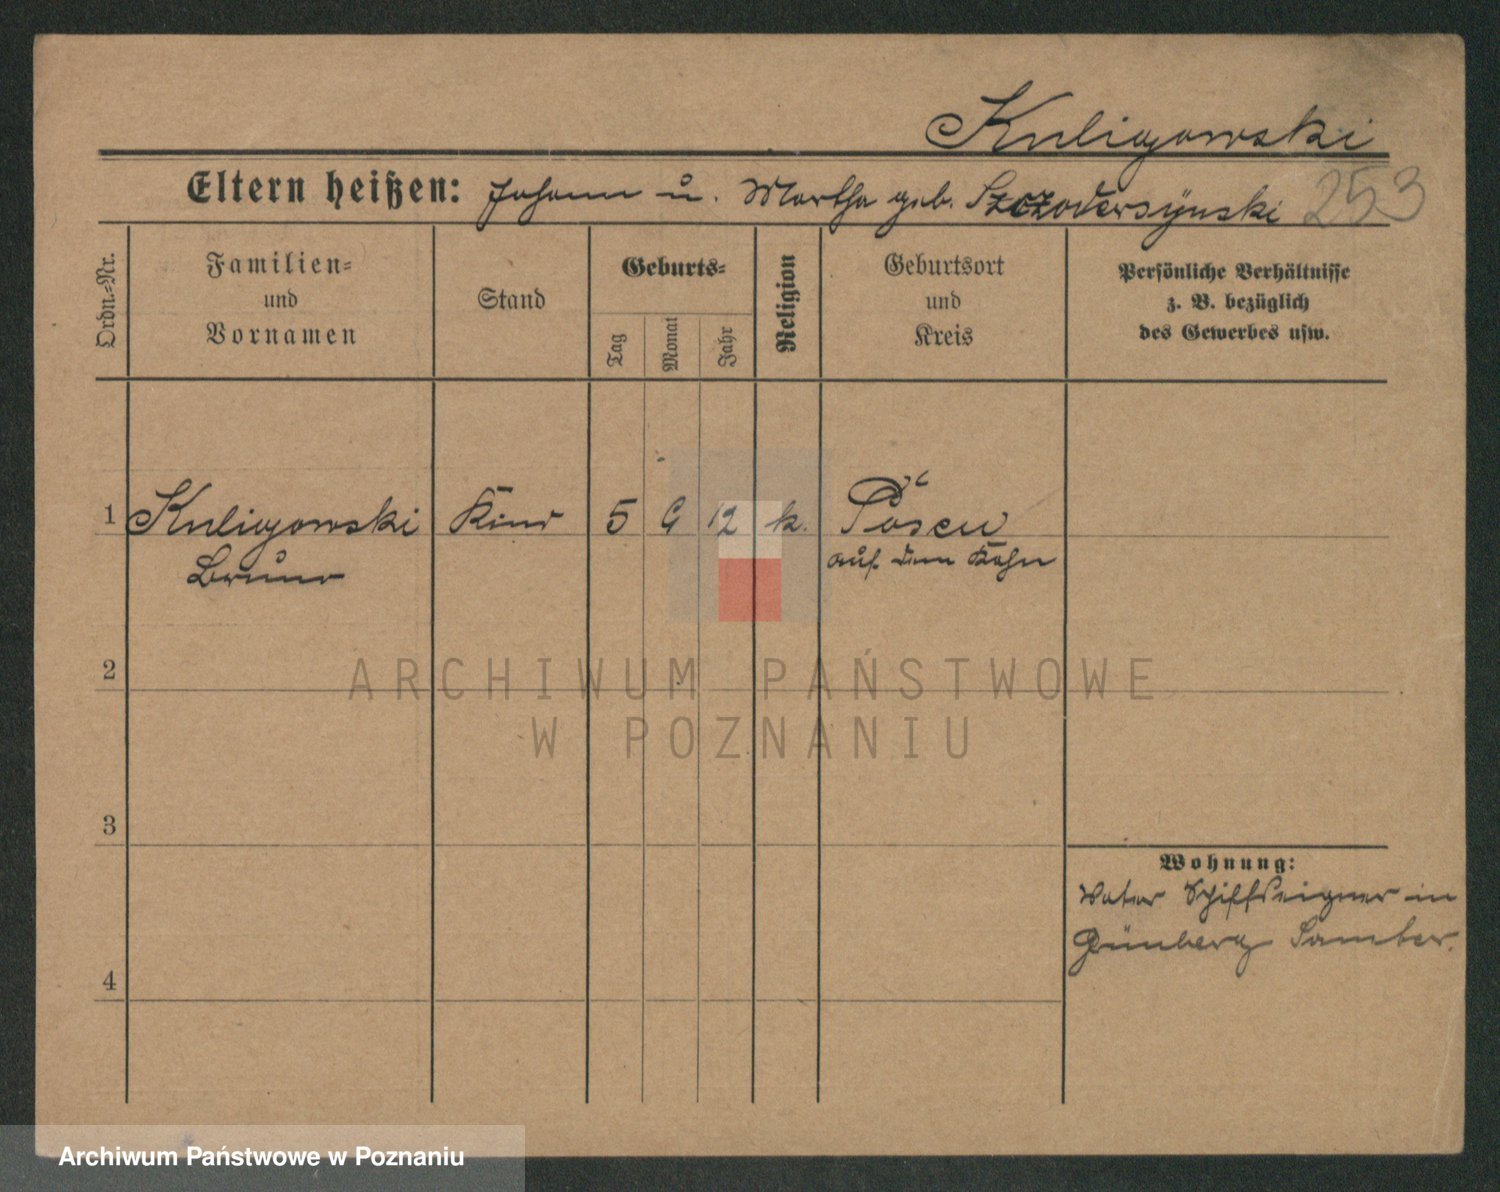 Kuligowski
Eltern heißen: Johann u. Martha geb. Szczodersynski 253
Ordn.=Nr.
Familien=
und
Vornamen
Stand
Geburts=
Tag
Monat
Jahr
Religion
Geburtsort
und
Kreis
Persönliche Verhältnisse
z. B. bezüglich
des Gewerbes usw.
1 Kuligowski Kind 5 9 12 k. Posen
Bruno auf dem Kahn
2
ARCHIWUM PAŃSTWOWE
W POZNANIU
3
Wohnung:
Vater Schiffseigner in
Grünberg Samter.
4
Archiwum Państwowe w Poznaniu